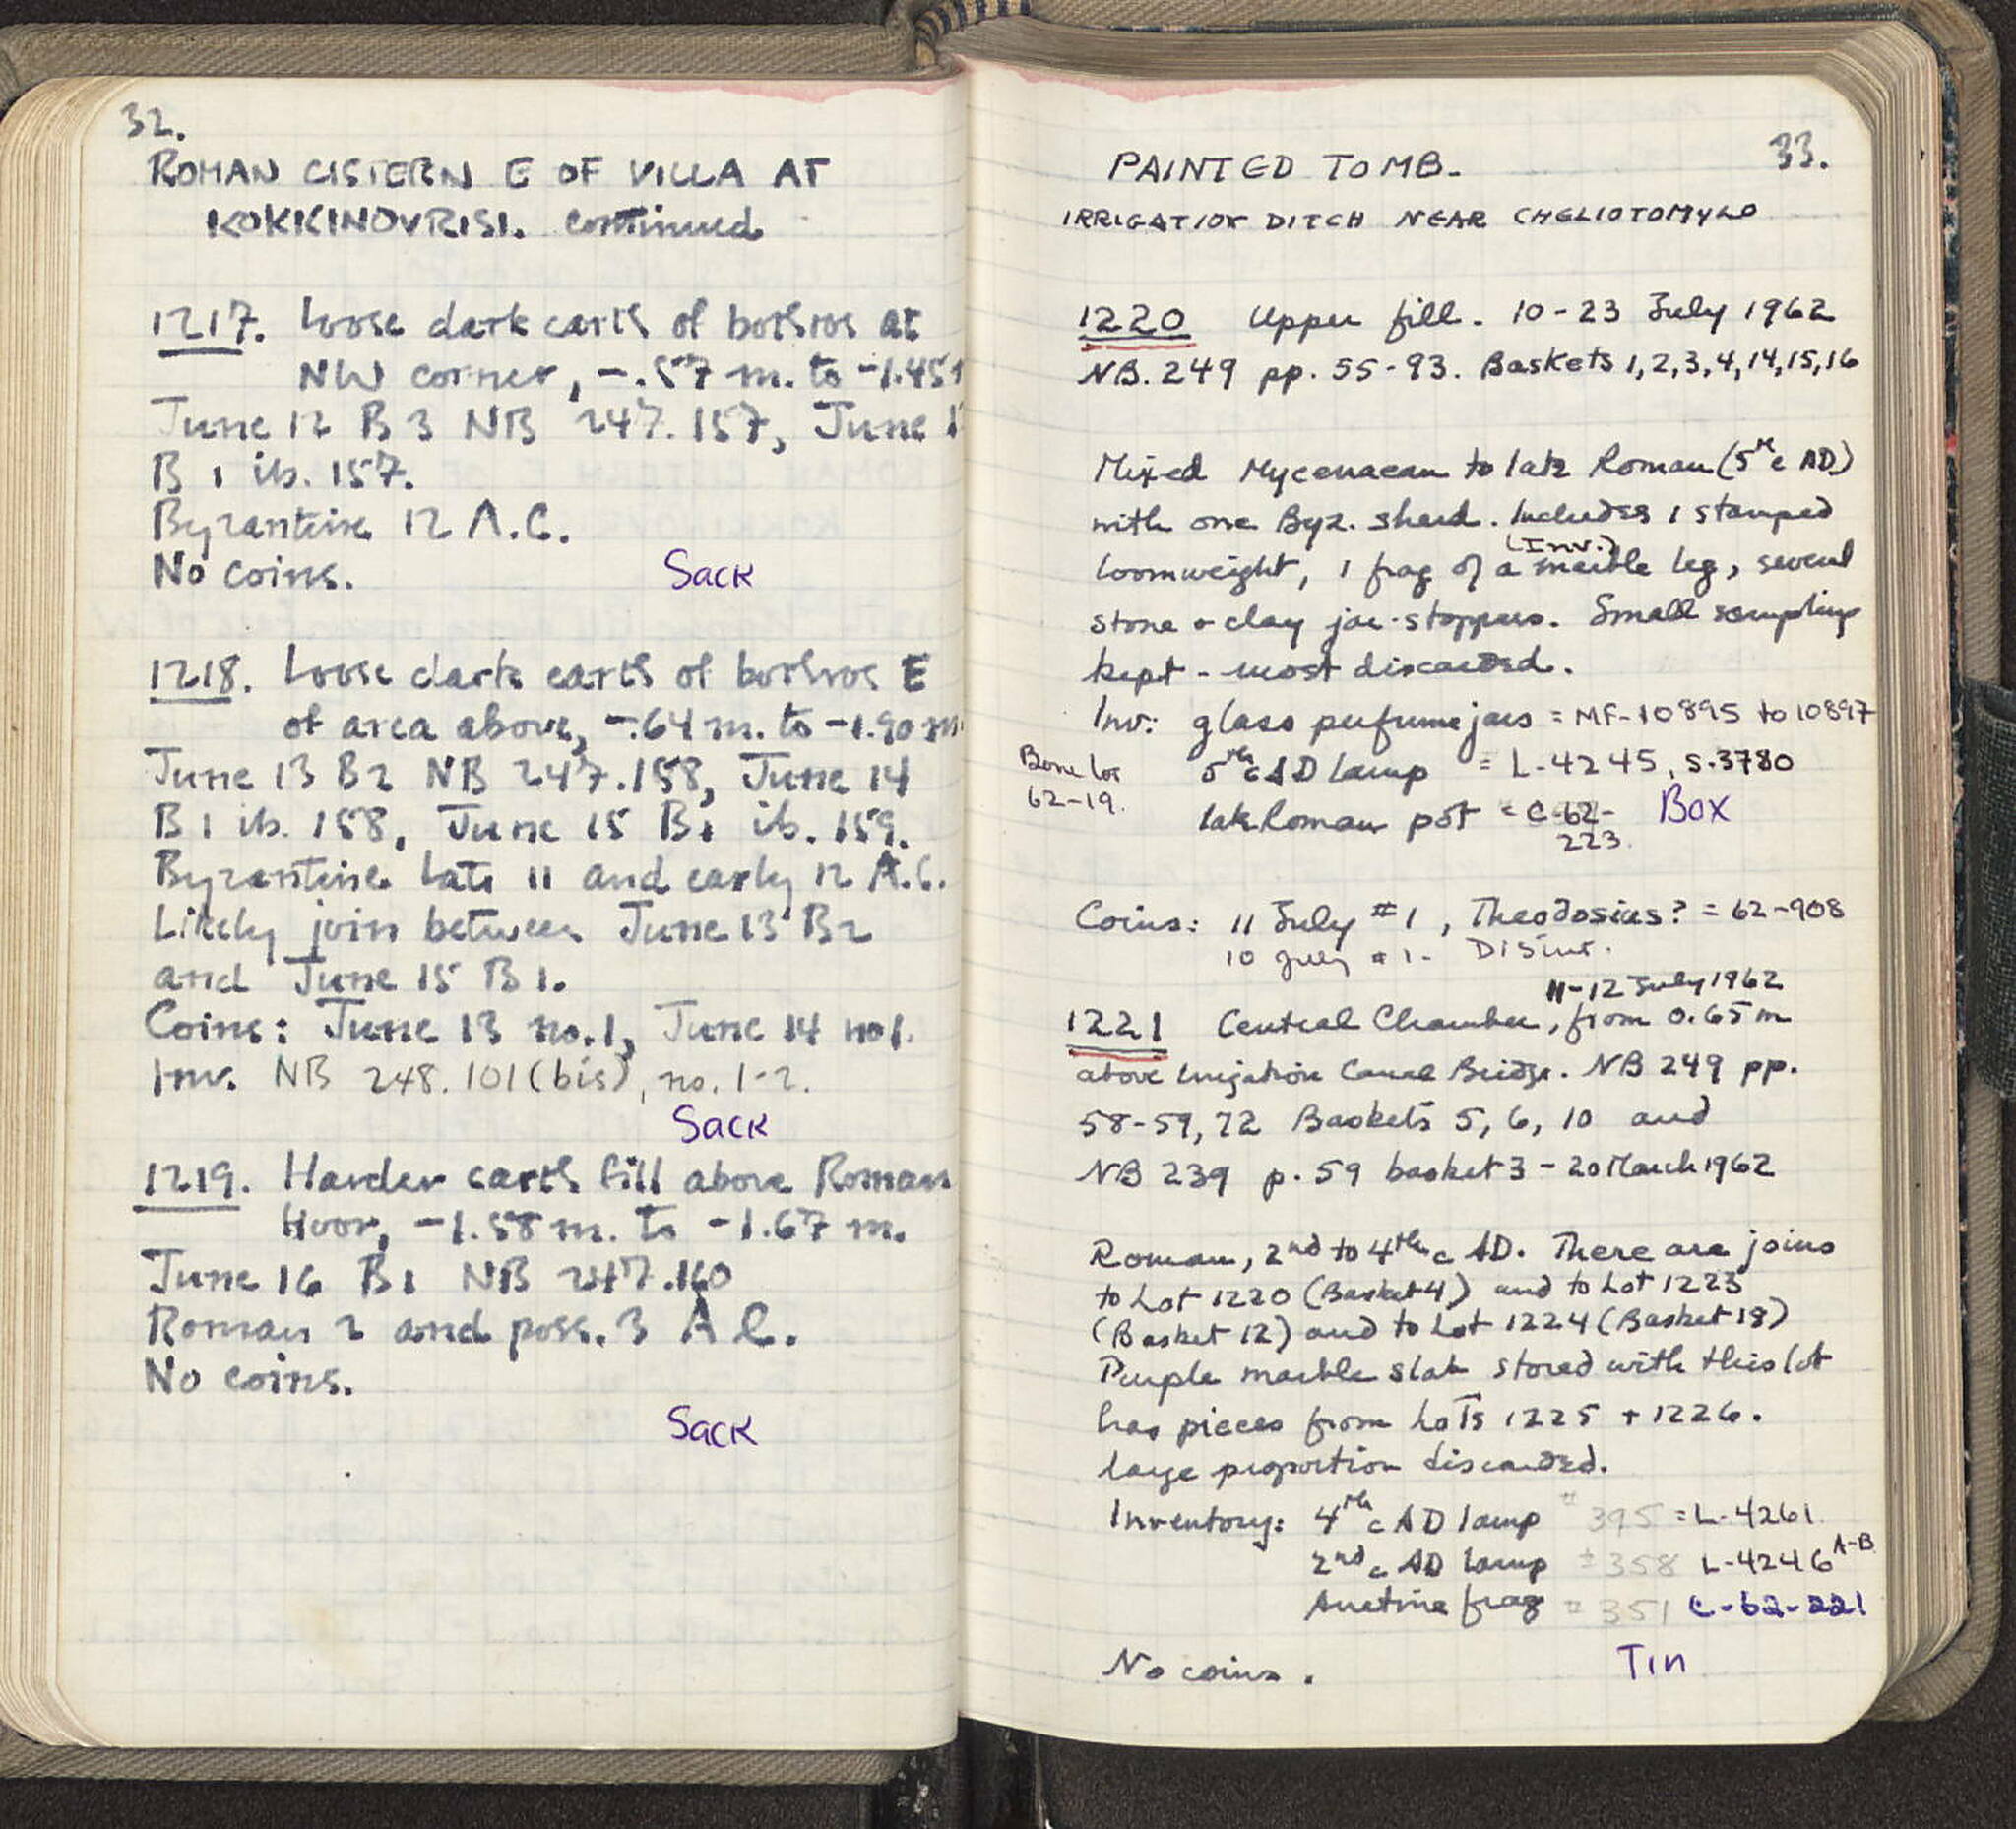 32.
ROMAN CISTERN E OF VILLA AT
KOKKINOVRISI. continued
1217. Loose dark earth of bothros at
NW corner, -.57 m. to -1.45
June 12 B 3 NB 247.157, June
B 1 ib. 157.
Byzantine 12 A.C.
No coins.
Sack
1218. Loose dark earth of bothros E
of area above, -.64 m. to -1.90 m
June 13 B2 NB 247.158, June 14
B1 ib. 158, June 15 B1 ib. 159.
Byzantine late 11 and early 12 A.C.
Likely join between June 13 B2
and June 15 B1.
Coins: June 13 no.1, June 14 no1.
Inv. NB 248.101(bis), no. 1-2.
Sack
1219. Harder earth fill above Roman
floor, -1.58 m. to -1.67 m.
June 16 B1 NB 247.160
Roman 2 and poss. 3 A C.
No coins.
Sack
33.
PAINTED TOMB-
IRRIGATION DITCH NEAR CHELIOTOMYLO
1220 Upper fill. 10-23 July 1962
NB. 249 pp. 55-93. Baskets 1,2,3,4,14,15,16
Mixed Mycenaean to late Roman (5th c AD)
with one Byz. sherd. Includes 1 stamped
(Inv.)
loomweight, 1 frag of a marble leg, several
stone & clay jar-stoppers. Small sampling
kept - most discarded.
Inv: glass perfume jars = MF-10895 to 10897
Bone lot
62-19.
5th c AD lamp = L-4245, S.3780
late Roman pot = C-62-
223.
Box
Coins: 11 July #1, Theodosius? = 62-908
10 July #1- Disint.
11-12 July 1962
1221 Central Chamber, from 0.65 m
above Irrigation Canal Bridge. NB 249 pp.
58-59, 72 Baskets 5, 6, 10 and
NB 239 p. 59 basket 3 - 20 March 1962
Roman, 2nd to 4th c AD. There are joins
to Lot 1220 (Basket 4) and to Lot 1223
(Basket 12) and to Lot 1224 (Basket 18)
Purple marble slab stored with this lot
has pieces from Lots 1225 + 1226.
large proportion discarded.
Inventory: 4th c AD lamp # 395 = L-4261
2nd c AD lamp # 358 L-4246 A-B
Arretine frag # 351 C-62-221
No coins.
Tin